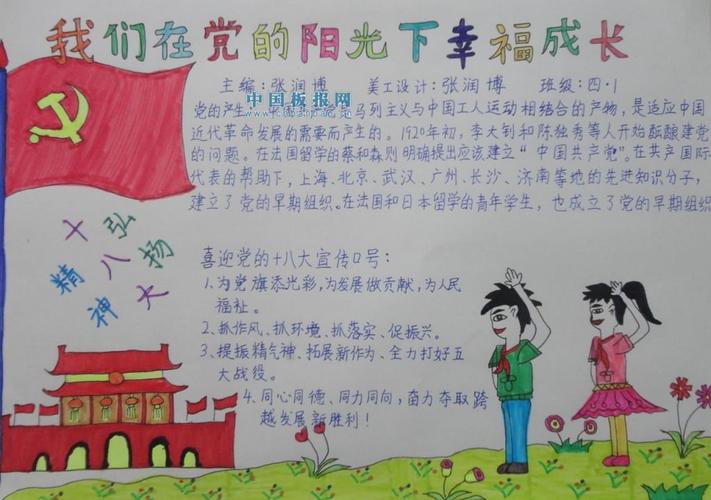 我们在党的阳光下幸福成长
主编:张润博 美工设计:张润博 班级:四·1
中国板报网
党的产生 马列主义与中国工人运动相结合的产物，是适应中国
近代革命发展的需要而产生的。1920年初，李大钊和陈独秀等人开始酝酿建党
的问题。在法国留学的蔡和森则明确提出应该建立“中国共产党”。在共产国际
代表的帮助下，上海、北京、武汉、广州、长沙、济南等地的先进知识分子，
建立了党的早期组织。在法国和日本留学的青年学生，也成立了党的早期组织
弘扬
十八大
精神
喜迎党的十八大宣传口号:
1.为党旗添光彩，为发展做贡献，为人民
福祉。
2.抓作风、抓环境、抓落实、促振兴。
3、提振精气神、拓展新作为、全力打好五
大战役。
4.同心同德、同力同向，奋力夺取跨
越发展新胜利！